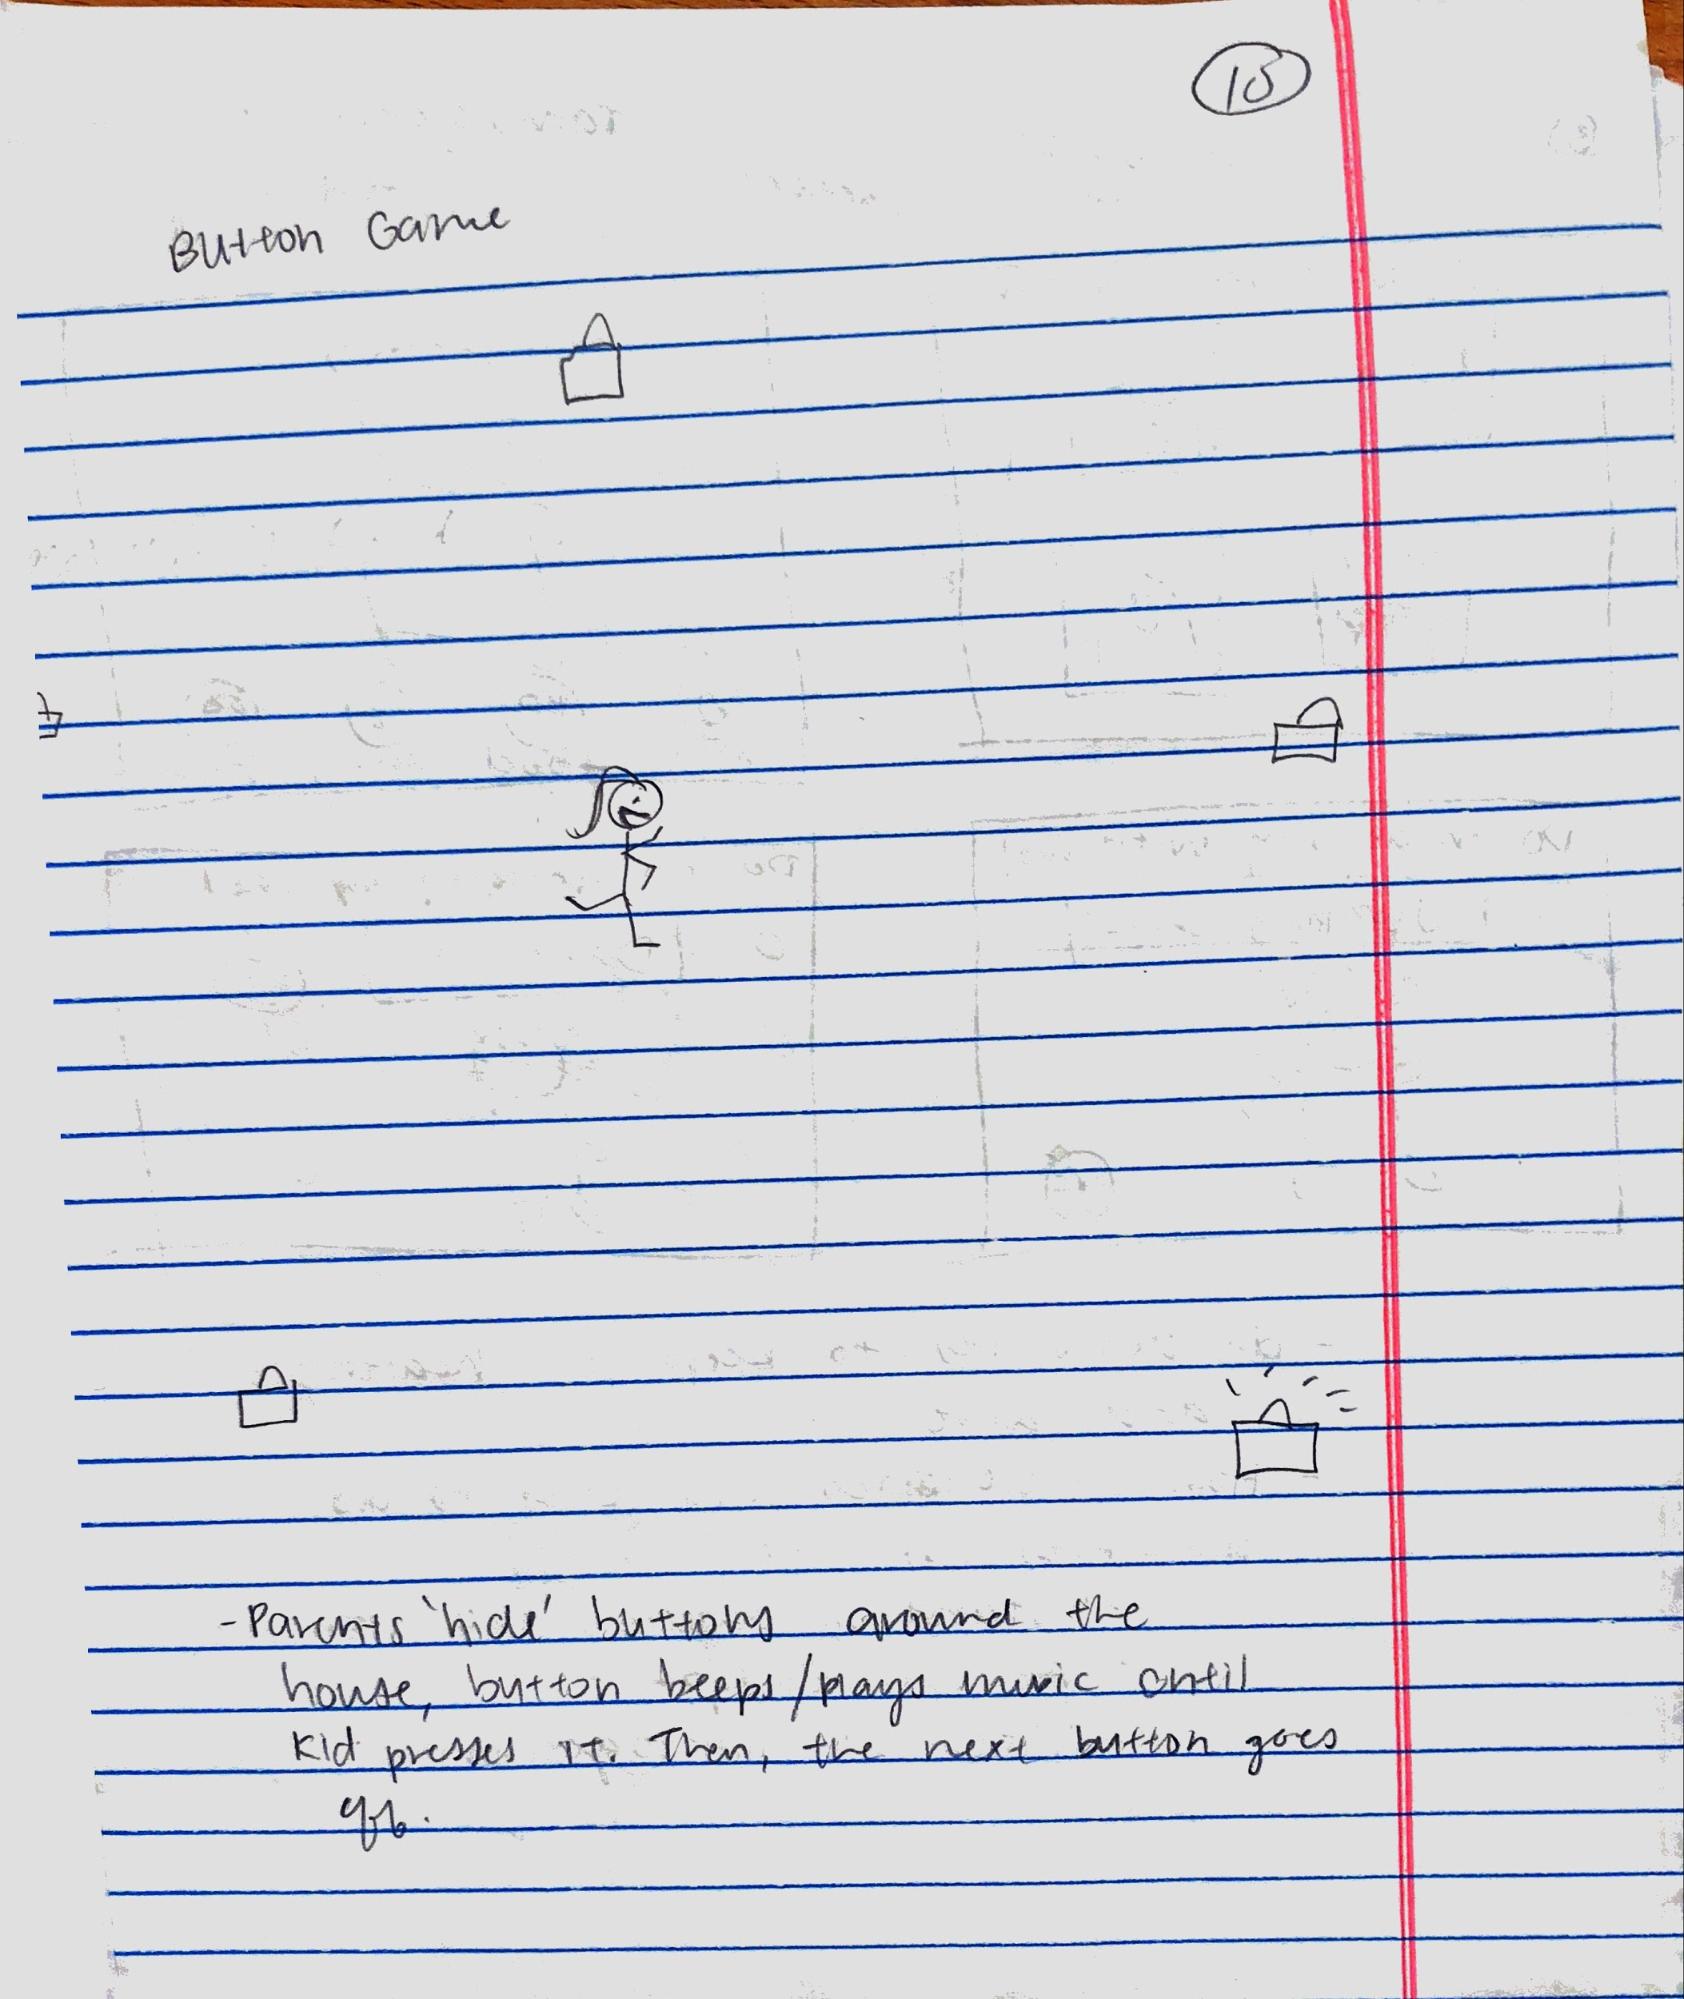 Button Game
- Parents 'hide' buttons around the
house, button beeps/plays music until
kid presses it. Then, the next button goes
off.